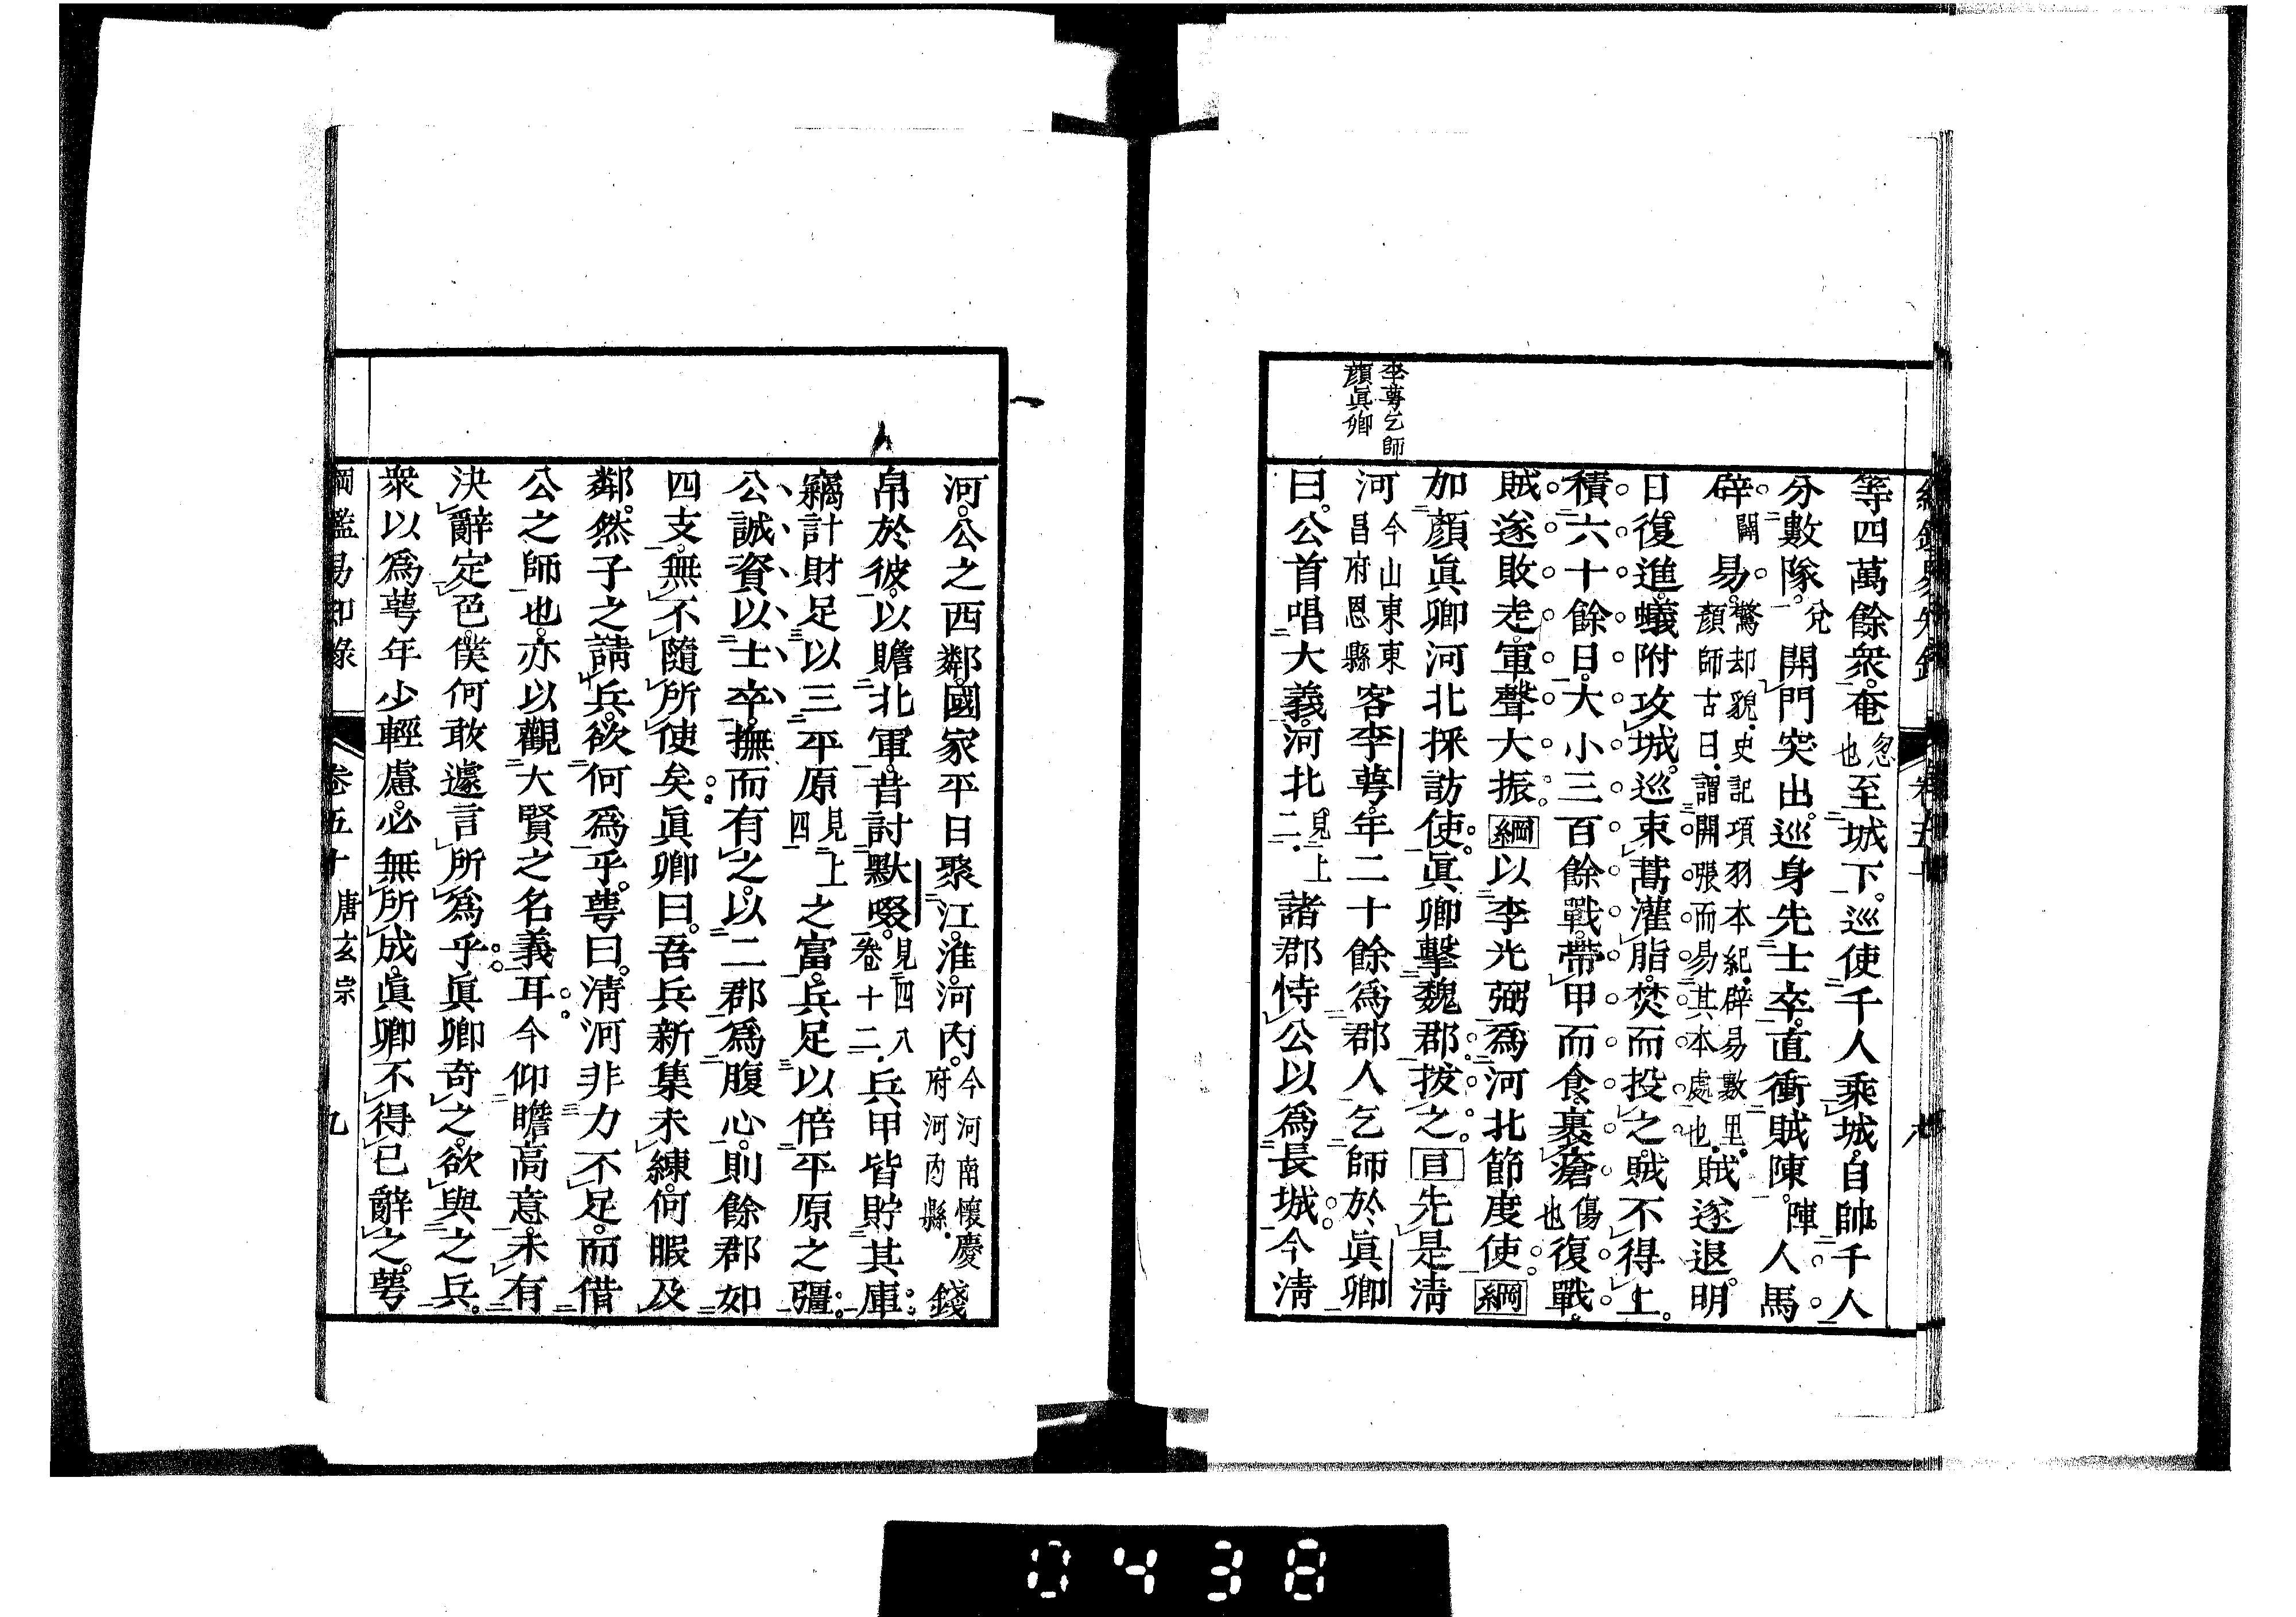 李萼乞師
顏眞卿
等四萬餘衆奄忽也至城下。巡使千人乘城。自帥千人
分數隊。兊開門突出。巡身先士卒。直衝賊陳。陣人馬
辟闢易。驚却貌。史記項羽本紀。辟易數里。顏師古曰。謂開張而易其本處也。賊遂退。明
日。復進。蟻附攻城。巡束蒿灌脂。焚而投之。賊不得上。
積六十餘日。大小三百餘戰。帶甲而食。裹瘡傷也復戰。
賊遂敗走。軍聲大振。綱以李光弼爲河北節度使。綱
加顏眞卿河北採訪使。眞卿擊魏郡。拔之。目先是淸
河今山東東昌府恩縣客李萼。年二十餘。爲郡人乞師於眞卿
曰。公首唱大義。河北見上二。諸郡恃公以爲長城。今淸
河。公之西鄰。國家平日聚江。淮。河內。今河南懷慶府河內縣。錢
帛於彼。以贍北軍。昔討默啜。見四八卷十二。兵甲皆貯其庫。
竊計財足以三平原見上四之富。兵足以倍平原之彊。
公誠資以士卒。撫而有之。以二郡爲腹心。則餘郡如
四支。無不隨所使矣。眞卿曰。吾兵新集未練。何暇及
鄰。然子之請兵。欲何爲乎。萼曰。淸河非力不足。而借
公之師也。亦以觀大賢之名義耳。今仰瞻高意。未有
決辭定色。僕何敢遽言所爲乎。眞卿奇之。欲與之兵。
衆以爲萼年少輕慮。必無所成。眞卿不得已辭之。萼
綱鑑易知錄 卷五十 唐玄宗 九
0438